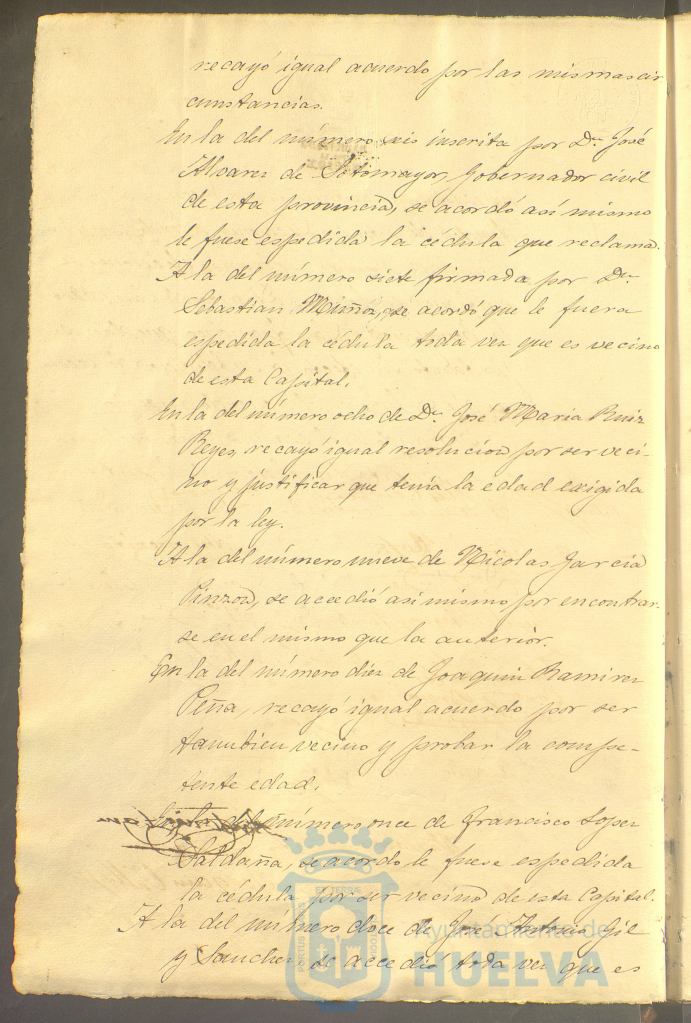 recayó igual acuerdo por las mismas cir
cunstancias.
En la del número seis inscrita por Dn. José
Alvarez de Sotomayor, Gobernador civil
de esta provincia, se acordó así mismo
le fuese espedida la cédula que reclama.
A la del número siete firmada por Dn.
Sebastian Muñoz, se acordó que le fuera
espedida la cédula toda vez que es vecino
de esta Capital.
En la del número ocho de Dn. José Maria Ruiz
Reyes, recayó igual resolucion por ser veci-
no y justificar que tenía la edad exigida
por la ley.
A la del número nueve de Nicolas Garcia
Pinzon, se accedió asi mismo por encontrar-
se en el mismo que la anterior.
En la del número diez de Joaquin Ramirez
Peña, recayó igual acuerdo por ser
tambien vecino y probar la compe-
tente edad.
En la del número once de Francisco Lopez
Saldaña, se acordo le fuese espedida
la cédula por ser vecino de esta Capital.
A la del número doce de José Antonio Gil
y Sanchez se accedio toda vez que es
Ayuntamiento de
HUELVA